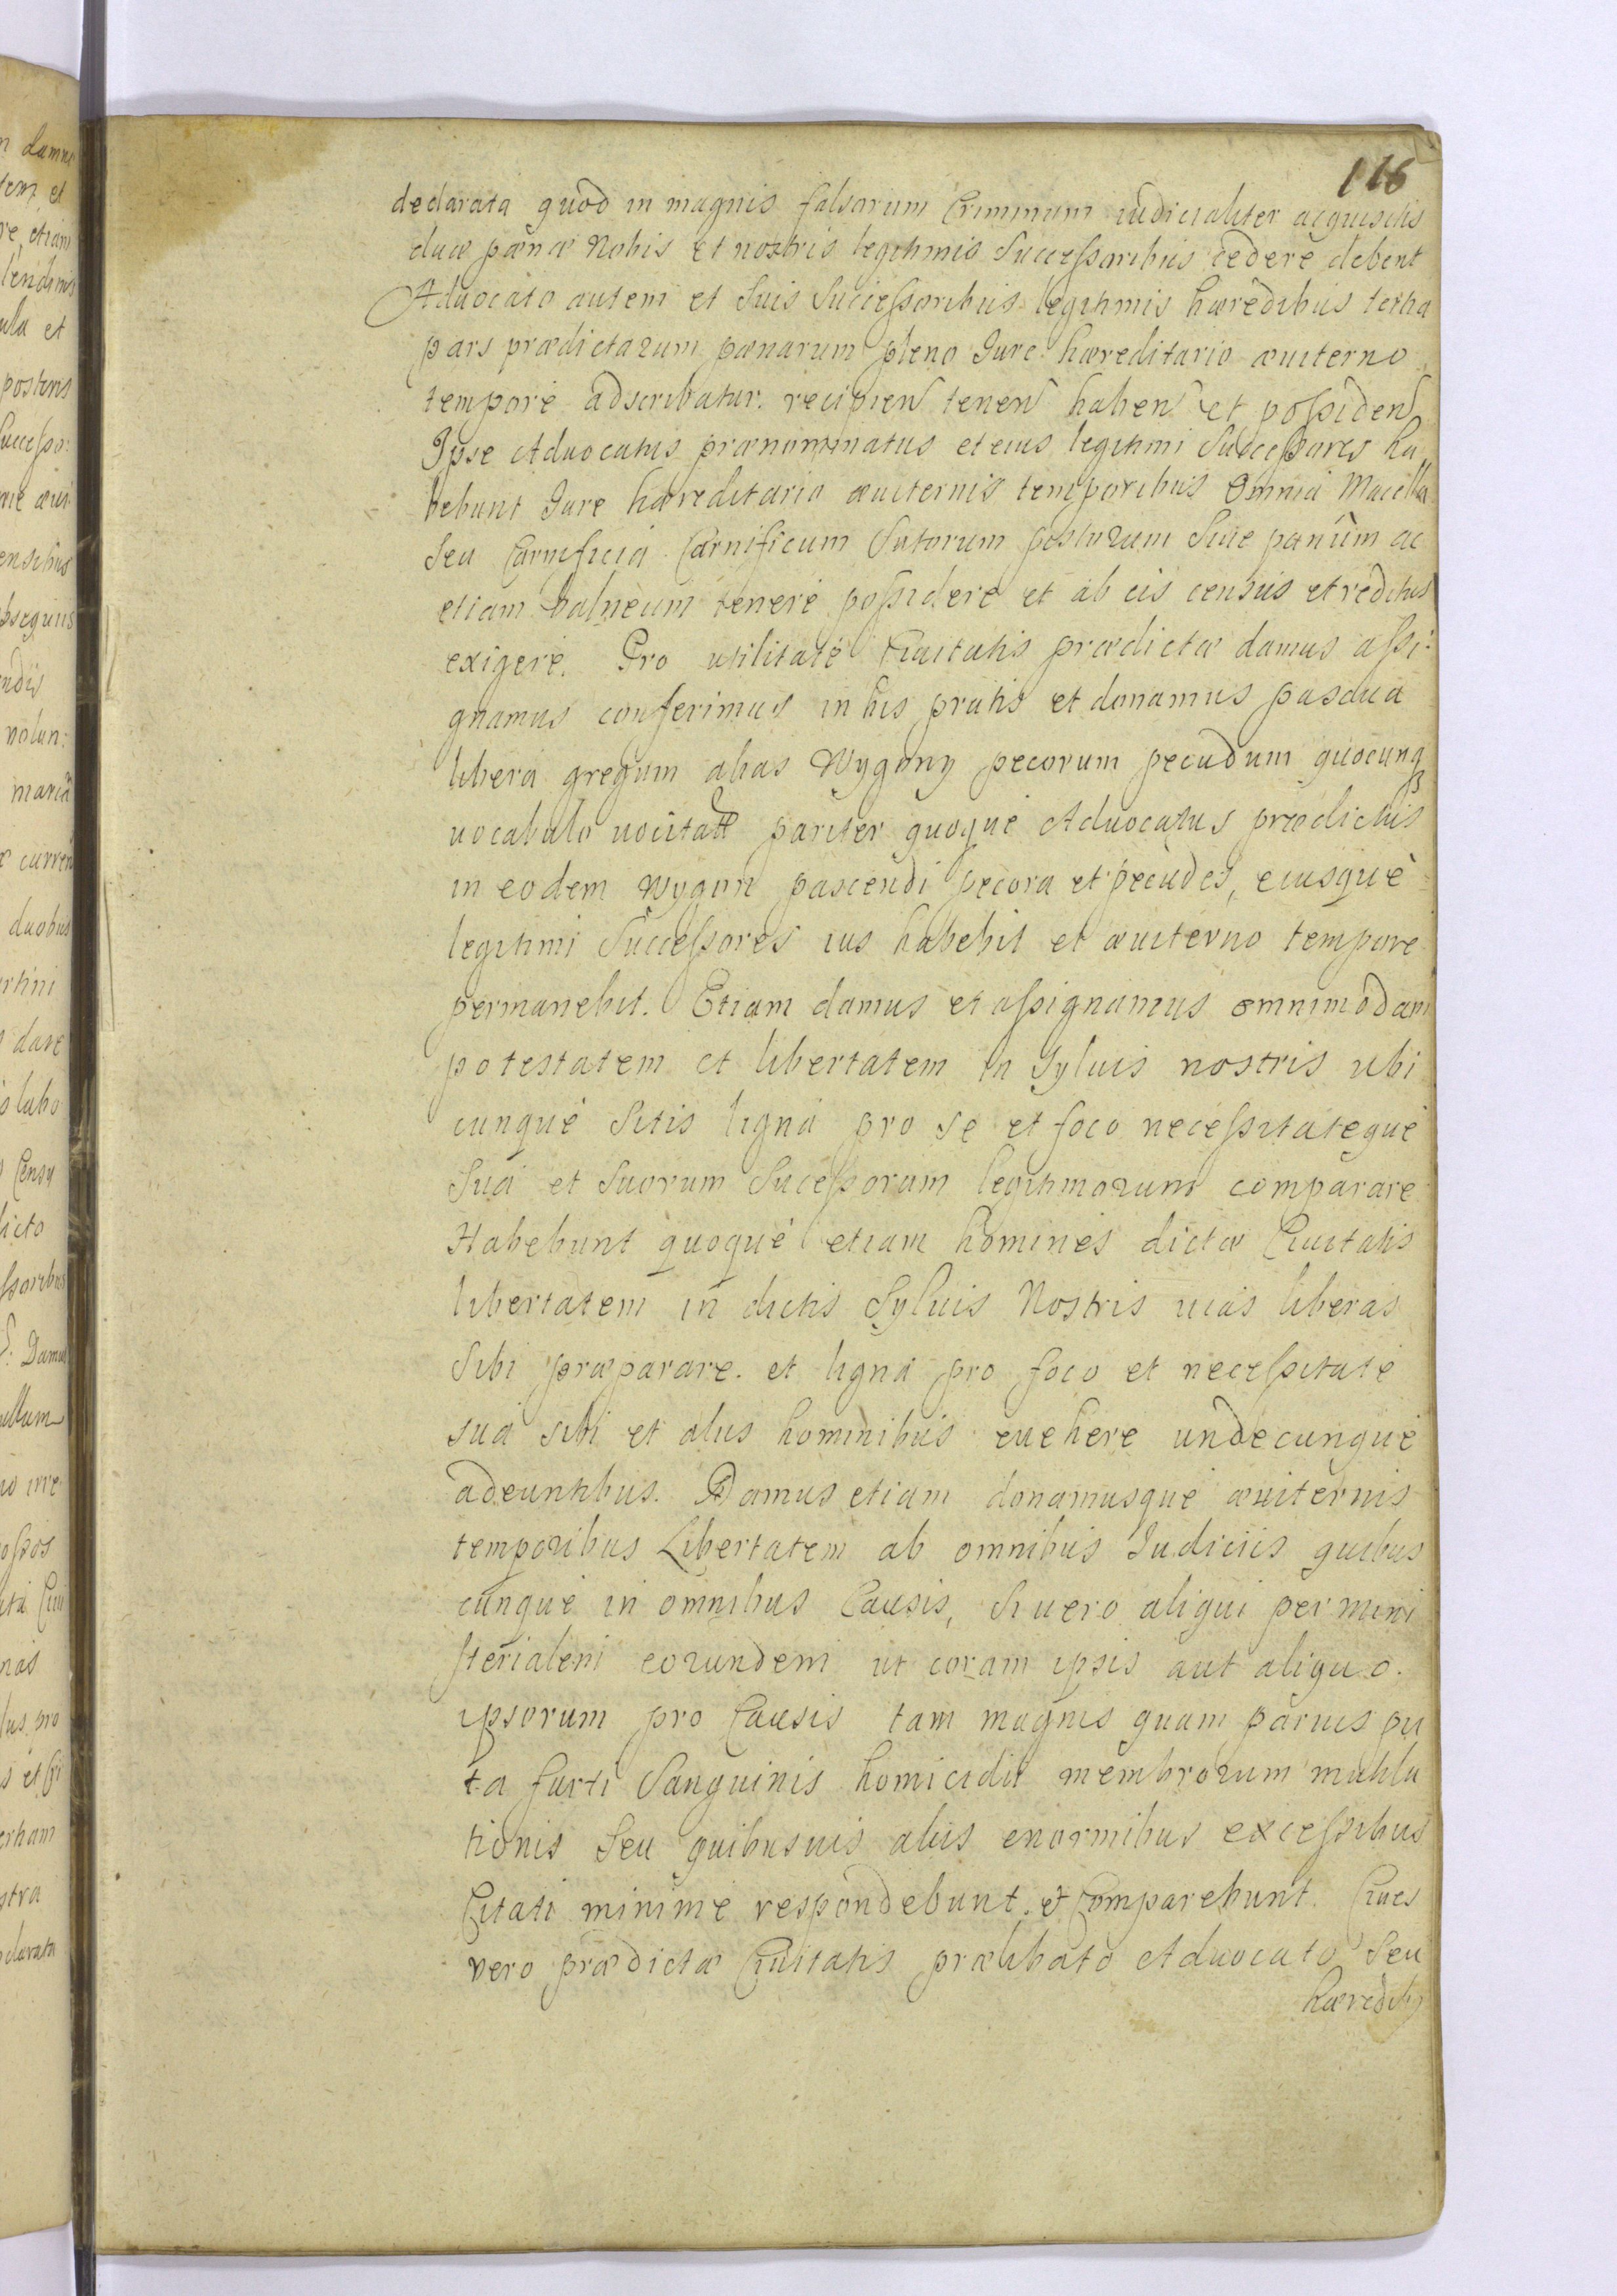 116
declarata quod in magnis falsorum Criminum iudicialiter acquisitis
duæ pænæ Nobis et nostris legitimis Successoribus cedere debent
Advocato autem et Suis Successoribus legitimis hæredibus tertia
pars prædictarum pænarum pleno Jure hæreditario æviterno
tempore adscribatur. recipien tenen haben et possiden
Ipse Advocatus prænominatus et eius legitimi Successores ha
bebunt Jure hæreditario æviternis temporibus Omnia Macella
Seu Carnificia Carnificum Sutorum pistorum Sive panum ac
etiam balneum tenere possidere et ab eis census et reditus
exigere. Pro utilitate Civitatis prædictæ damus assi:
gnamus conferimus in his pratis et donamus pascua
libera gregum alias Wygony pecorum pecudum quocunq
vocabulo vocitatt pariter quoque Advocatus prædictus
in eodem wygon pascendi pecora et pecudes, eiusque
legitimi Successores ius habebit et æviterno tempore
permanebit. Etiam damus et assignamus omnimodam
potestatem et libertatem in Sylvis nostris ubi
cunque Sitis ligna pro se et foco necessitateque
Sua et Suorum Sucessorum legitimorum comparare
Habebunt quoque etiam homines dictæ Civitatis
libertatem in dictis Sylvis Nostris vias liberas
Sibi præparare. et ligna pro foco et necessitate
sua sibi et aliis hominibus evehere undecunque
adeuntibus. Damus etiam donamusque æviternis
temporibus Libertatem ab omnibus Judiciis quibus
cunque in omnibus Causis, Si vero aliqui per mini
sterialem eorundem ut coram ipsis aut aliquo.
ipsorum pro Causis tam magnis quam parvis pu
ta furti Sanguinis homicidii membrorum mutila
tionis Seu quibusvis aliis enormibus excessibus
Citati minime respondebunt. et Comparebunt. Cives
vero prædictæ Civitatis prælibato Advocato Seu
hæredib9